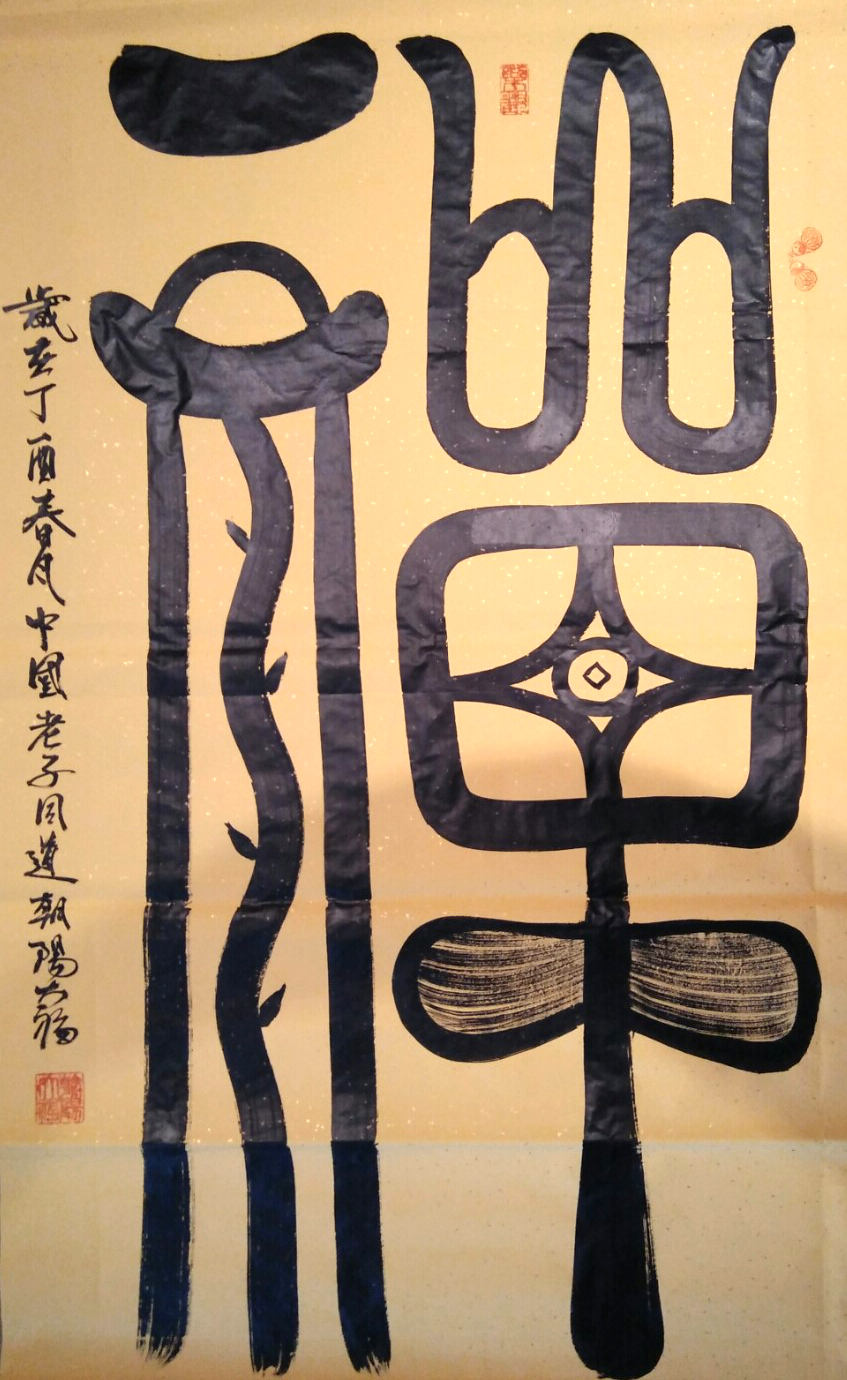 禪
歲在丁酉春月中國老子同道朝陽大福